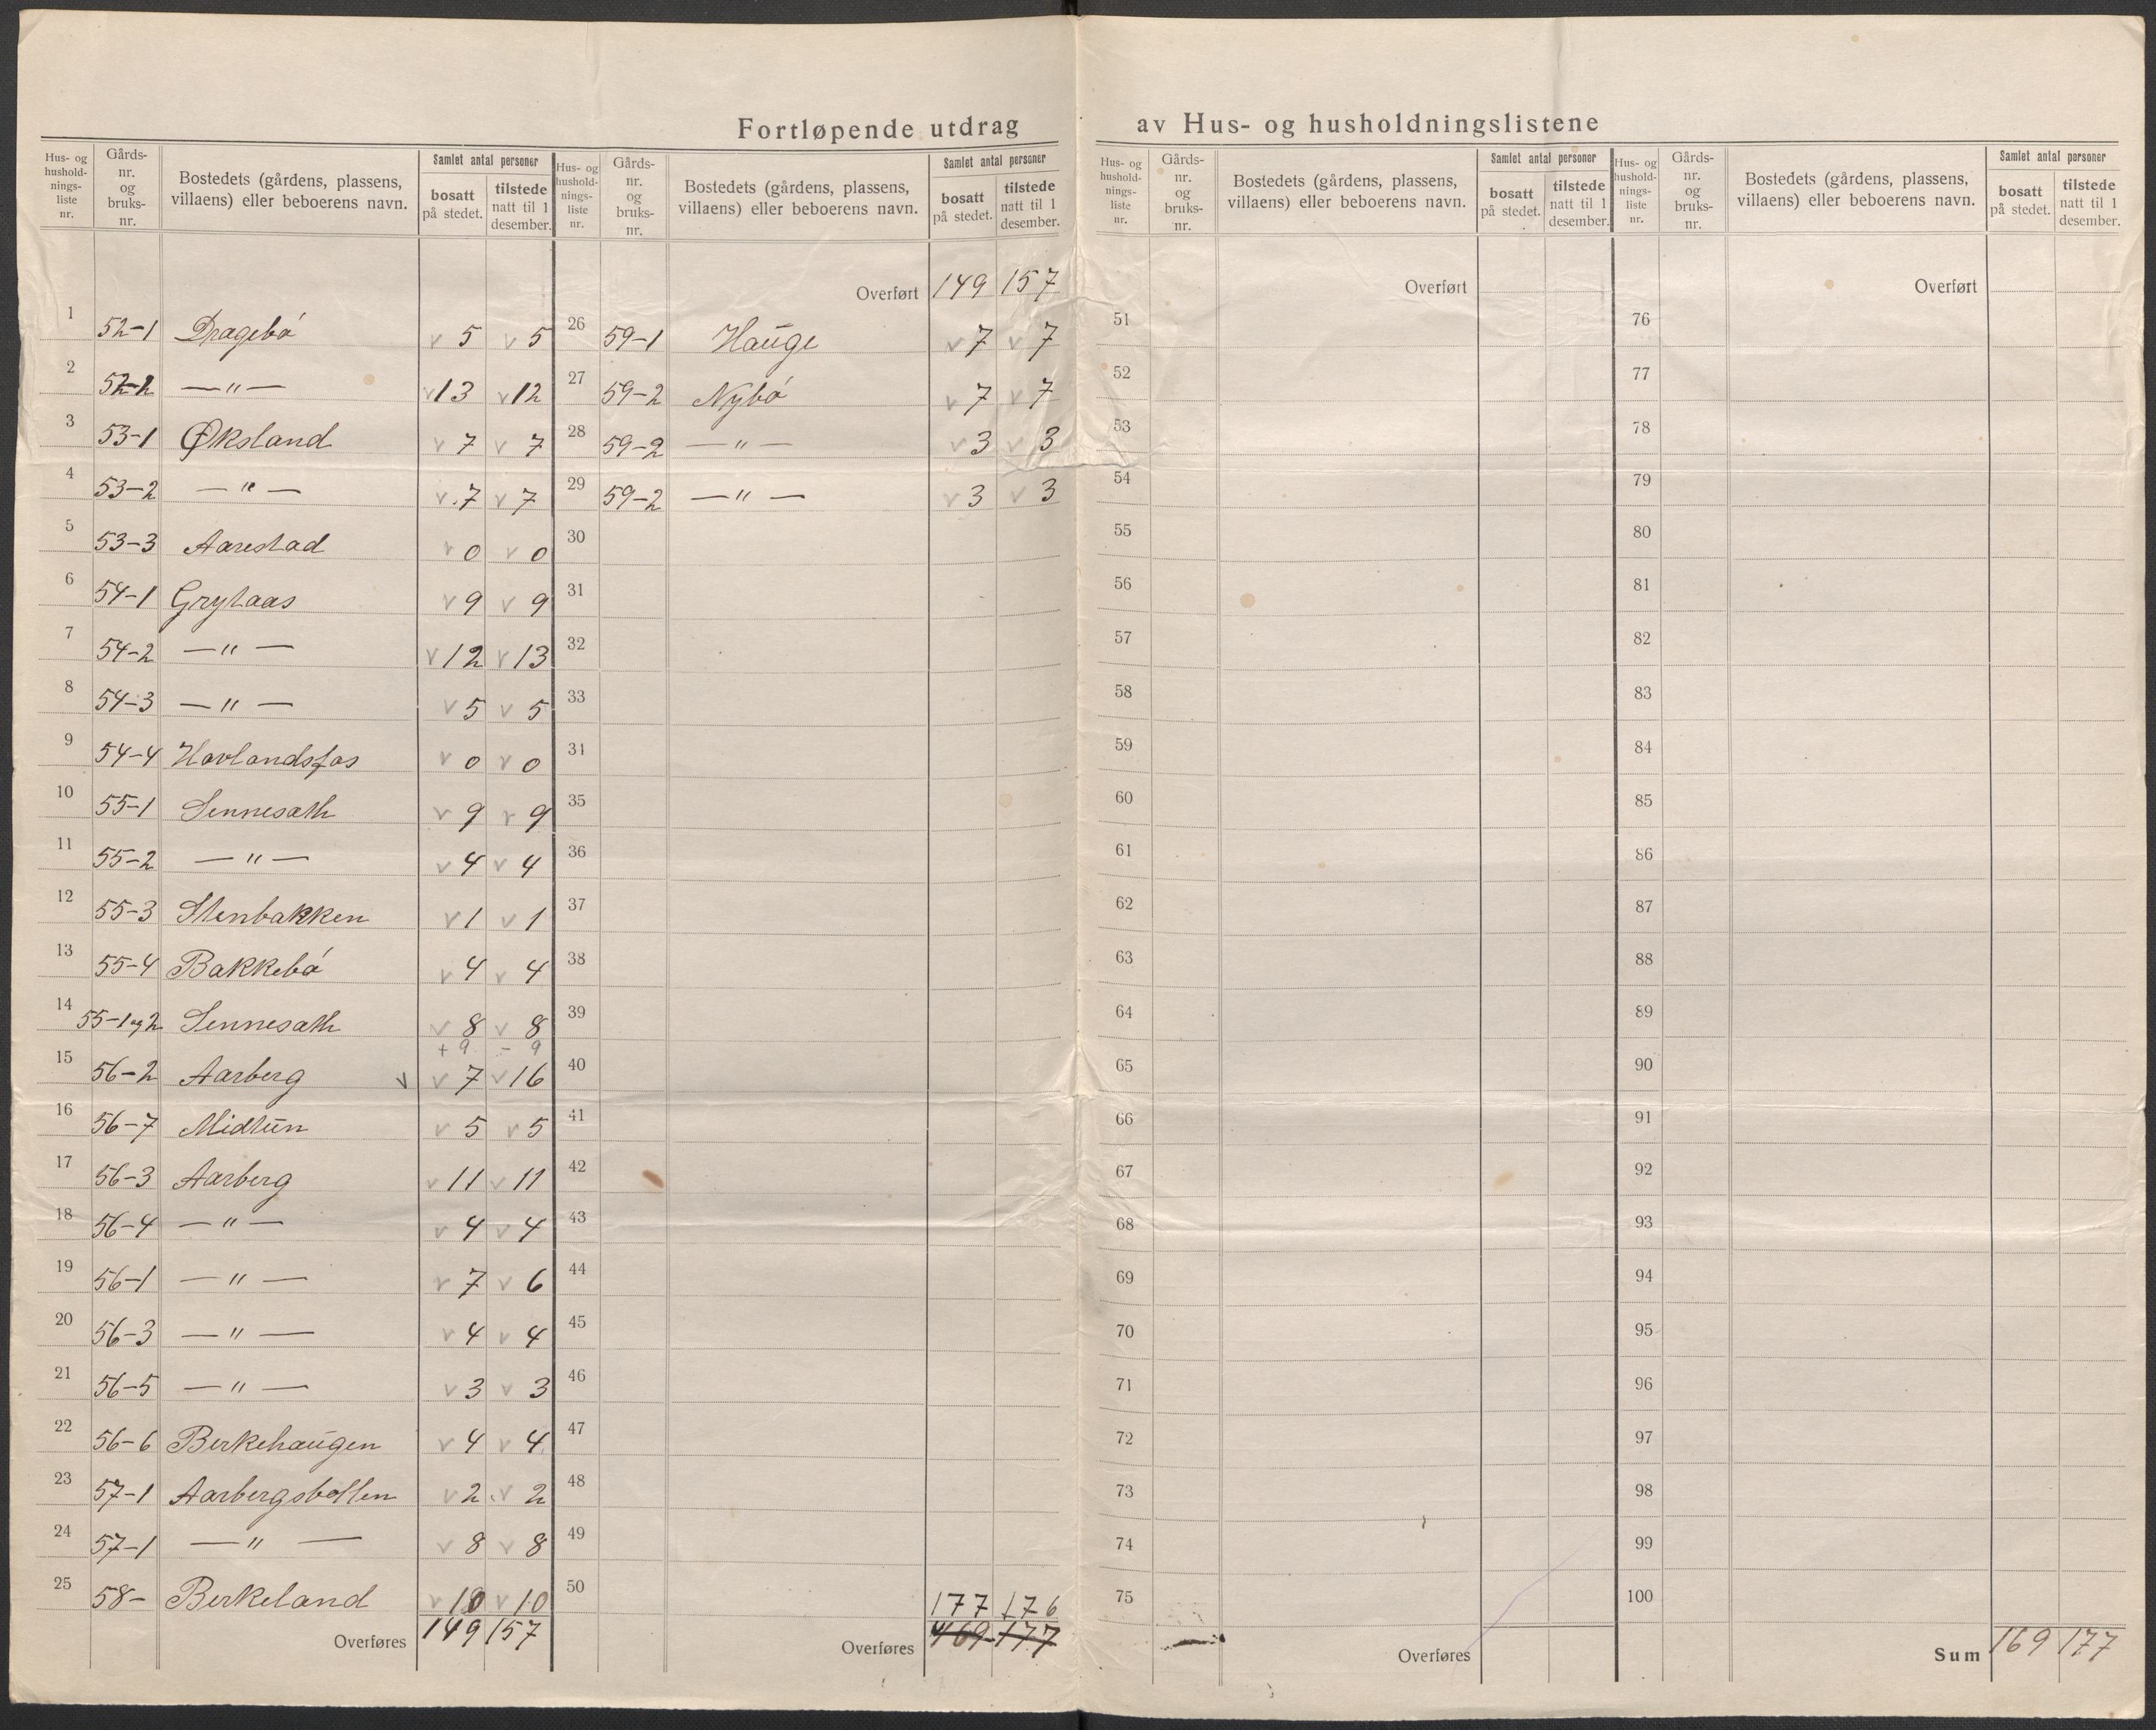 Fortløpende utdrag av Hus- og husholdningslistene
Hus- og hushold- nings- liste nr. | Gårds- nr. og bruks- nr. | Bostedets (gårdens, plassens, villaens) eller beboerens navn. | Samlet antal personer | bosatt på stedet. | tilstede natt til 1 desember.
Hus- og hushold- nings- liste nr. | Gårds- nr. og bruks- nr. | Bostedets (gårdens, plassens, villaens) eller beboerens navn. | Samlet antal personer | bosatt på stedet. | tilstede natt til 1 desember.
1 52-1 Dragebó v 5 v 5
2 52-2 — " — v 13 v 12
3 53-1 Øksland v 7 v 7
4 53-2 — " — v 7 v 7
5 53-3 Aarestad v 0 v 0
6 54-1 Grytaas v 9 v 9
7 54-2 — " — v 12 v 13
8 54-3 — " — v 5 v 5
9 54-4 Havlandsfos v 0 v 0
10 55-1 Sennesæth v 9 v 9
11 55-2 — " — v 4 v 4
12 55-3 Stenbakken v 1 v 1
13 55-4 Bakkebó v 4 v 4
14 55-1 og 2 Sennesæth v 8 v 8
+ 9 - 9
15 56-2 Aarberg v v 7 v 16
16 56-7 Midtun v 5 v 5
17 56-3 Aarberg v 11 v 11
18 56-4 — " — v 4 v 4
19 56-1 — " — v 7 v 6
20 56-3 — " — v 4 v 4
21 56-5 — " — v 3 v 3
22 56-6 Berkehaugen v 4 v 4
23 57-1 Aarbergsbotten v 2 v 2
24 57-1 — " — v 8 v 8
25 58- Berkeland v 10 v 10
Overføres 149 157
Overført 149 157
26 59-1 Hauge v 7 v 7
27 59-2 Nybó v 7 v 7
28 59-2 — " — v 3 v 3
29 59-2 — " — v 3 v 3
30
31
32
33
31
35
36
37
38
39
40
41
42
43
44
45
46
47
48
49
50
177 176
Overføres 169 177
Hus- og hushold- nings- liste nr. | Gårds- nr. og bruks- nr. | Bostedets (gårdens, plassens, villaens) eller beboerens navn. | Samlet antal personer | bosatt på stedet. | tilstede natt til 1 desember.
Overført
51
52
53
54
55
56
57
58
59
60
61
62
63
64
65
66
67
68
69
70
71
72
73
74
75
Overføres
Hus- og hushold- nings- liste nr. | Gårds- nr. og bruks- nr. | Bostedets (gårdens, plassens, villaens) eller beboerens navn. | Samlet antal personer | bosatt på stedet. | tilstede natt til 1 desember.
Overført
76
77
78
79
80
81
82
83
84
85
86
87
88
89
90
91
92
93
94
95
96
97
98
99
100
Sum 169 177